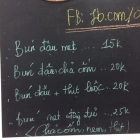 FB: fb.com/
Bún đậu mẹt ... 15k
Bún đậu chả cốm .. 20k
Bún đậu + thịt luộc .. 20k
Bún mẹt đầy đủ .. 25k
(Chả cốm, nem,